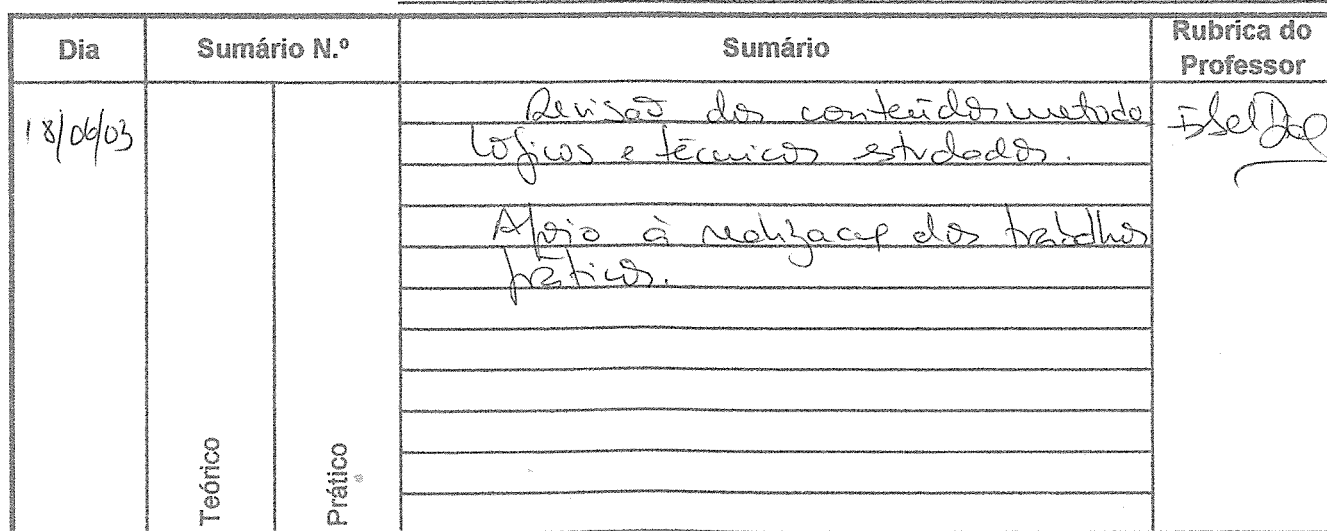 Dia Sumário N.º Sumário Rubrica do Professor
18/06/03
Revisão dos conteúdos metodo
lógicos e técnicos estudados.
Apoio à realização dos trabalhos
práticos.
Teórico
Prático